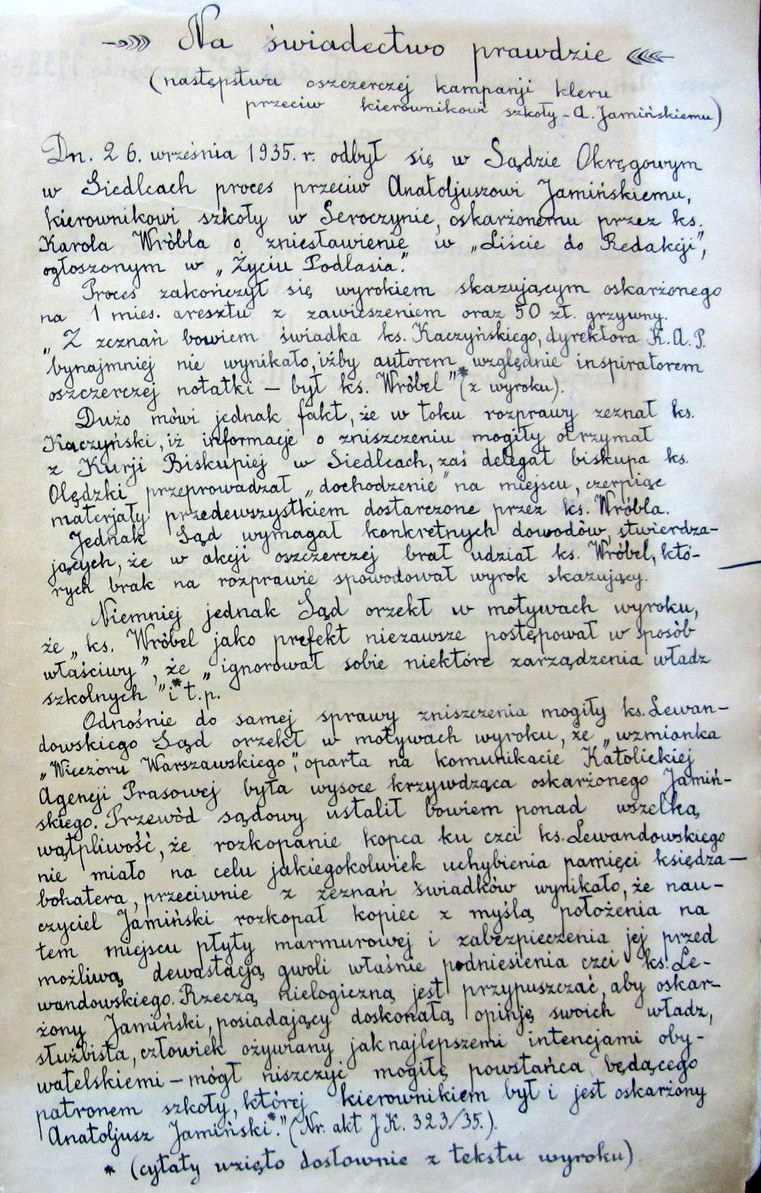 Na świadectwo prawdzie
(następstwa oszczerczej kampanji kleru
przeciw kierownikowi szkoły - A. Jamińskiemu)
Dn. 26. września 1935. r. odbył się w Sądzie Okręgowym
w Siedlcach proces przeciw Anatoljuszowi Jamińskiemu,
kierownikowi szkoły w Seroczynie, oskarżonemu przez ks.
Karola Wróbla o zniesławienie w „Liście do Redakcji",
ogłoszonym w „Życiu Podlasia."
Proces zakończył się wyrokiem skazującym oskarżonego
na 1 mies. aresztu z zawieszeniem oraz 50 zł. grzywny.
„Z zeznań bowiem świadka ks. Kaczyńskiego, dyrektora K.A.P.
bynajmniej nie wynikało, iżby autorem względnie inspiratorem
oszczerczej notatki — był ks. Wróbel"* (z wyroku).
Dużo mówi jednak fakt, że w toku rozprawy zeznał ks.
Kaczyński, iż informacje o zniszczeniu mogiły otrzymał
z Kurji Biskupiej w Siedlcach, zaś delegat biskupa ks.
Olędzki przeprowadzał „dochodzenie" na miejscu, czerpiąc
materjały przedewszystkiem dostarczone przez ks. Wróbla.
Jednak Sąd wymagał konkretnych dowodów, stwierdza-
jących, że w akcji oszczerczej brał udział ks. Wróbel, któ-
rych brak na rozprawie spowodował wyrok skazujący.
Niemniej jednak Sąd orzekł w motywach wyroku,
że „ks. Wróbel jako prefekt niezawsze postępował w sposób
właściwy", że „ignorował sobie niektóre zarządzenia władz
szkolnych"* i t.p.
Odnośnie do samej sprawy zniszczenia mogiły ks. Lewan-
dowskiego Sąd orzekł w motywach wyroku, że „wzmianka
„Wieczoru Warszawskiego", oparta na komunikacie Katolickiej
Agencji Prasowej była wysoce krzywdząca oskarżonego Jamiń-
skiego. Przewód sądowy ustalił bowiem ponad wszelką
wątpliwość, że rozkopanie kopca ku czci ks. Lewandowskiego
nie miało na celu jakiegokolwiek uchybienia pamięci księdza—
bohatera, przeciwnie z zeznań świadków wynikało, że nau-
czyciel Jamiński rozkopał kopiec z myślą położenia na
tem miejscu płyty marmurowej i zabezpieczenia jej przed
możliwą dewastacją gwoli właśnie podniesienia czci ks. Le-
wandowskiego. Rzeczą nielogiczną jest przypuszczać, aby oskar-
żony Jamiński, posiadający doskonałą opinję swoich władz,
służbista, człowiek ożywiany jaknajlepszemi intencjami oby-
watelskiemi — mógł niszczyć mogiłę powstańca będącego
patronem szkoły, której kierownikiem był i jest oskarżony
Anatoljusz Jamiński*." (Nr. akt J K. 323/35.).
* (cytaty wzięto dosłownie z tekstu wyroku).